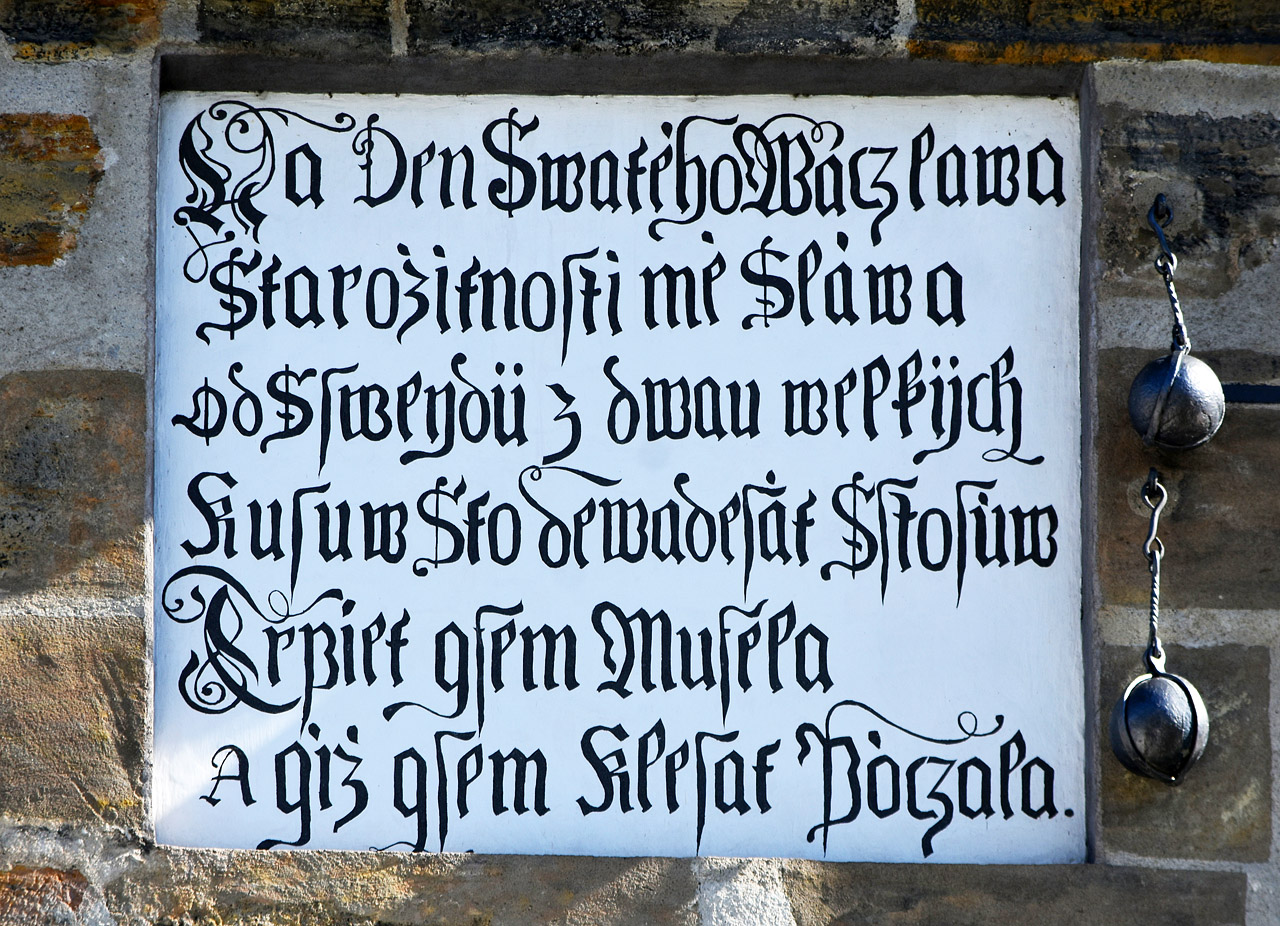 Na Den Swatého Wáczlawa
Starožitnosti mé Sláwa
od Sſweydü z dwau welkijch
Kuſuw Sto dewadeſát Sſtoſůw
Trpiet gſem Muſela
A giž gſem Kleſat Poczala.